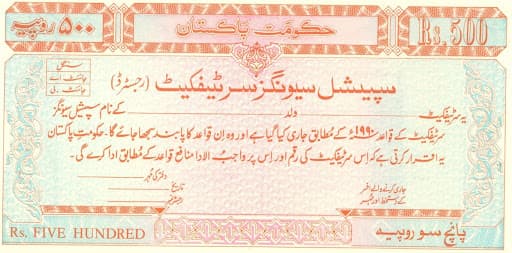 ۵۰۰ روپیہ حکومت پاکستان Rs. 500
سپیشل سیونگز سرٹیفکیٹ (رجسٹرڈ)
سنگل
جائنٹ اے
جائنٹ بی
یہ سرٹیفکیٹ ولد کے نام سپیشل سیونگز
سرٹیفکیٹ کے قواعد ۱۹۹۰ء کے مطابق جاری کیا گیا ہے اور وہ اِن قواعد کا پابند سمجھا جائے گا۔ حکومتِ پاکستان
یہ اقرار کرتی ہے کہ اِس سرٹیفکیٹ کی رقم اور اِس پر واجب الادا منافع قواعد کے مطابق ادا کرے گی۔
دفتر کی مُہر
جاری کرنے والے افسر
کے دستخط اور مُہر
تاریخ
رجسٹر نمبر
Rs. FIVE HUNDRED پانچ سو روپیہ